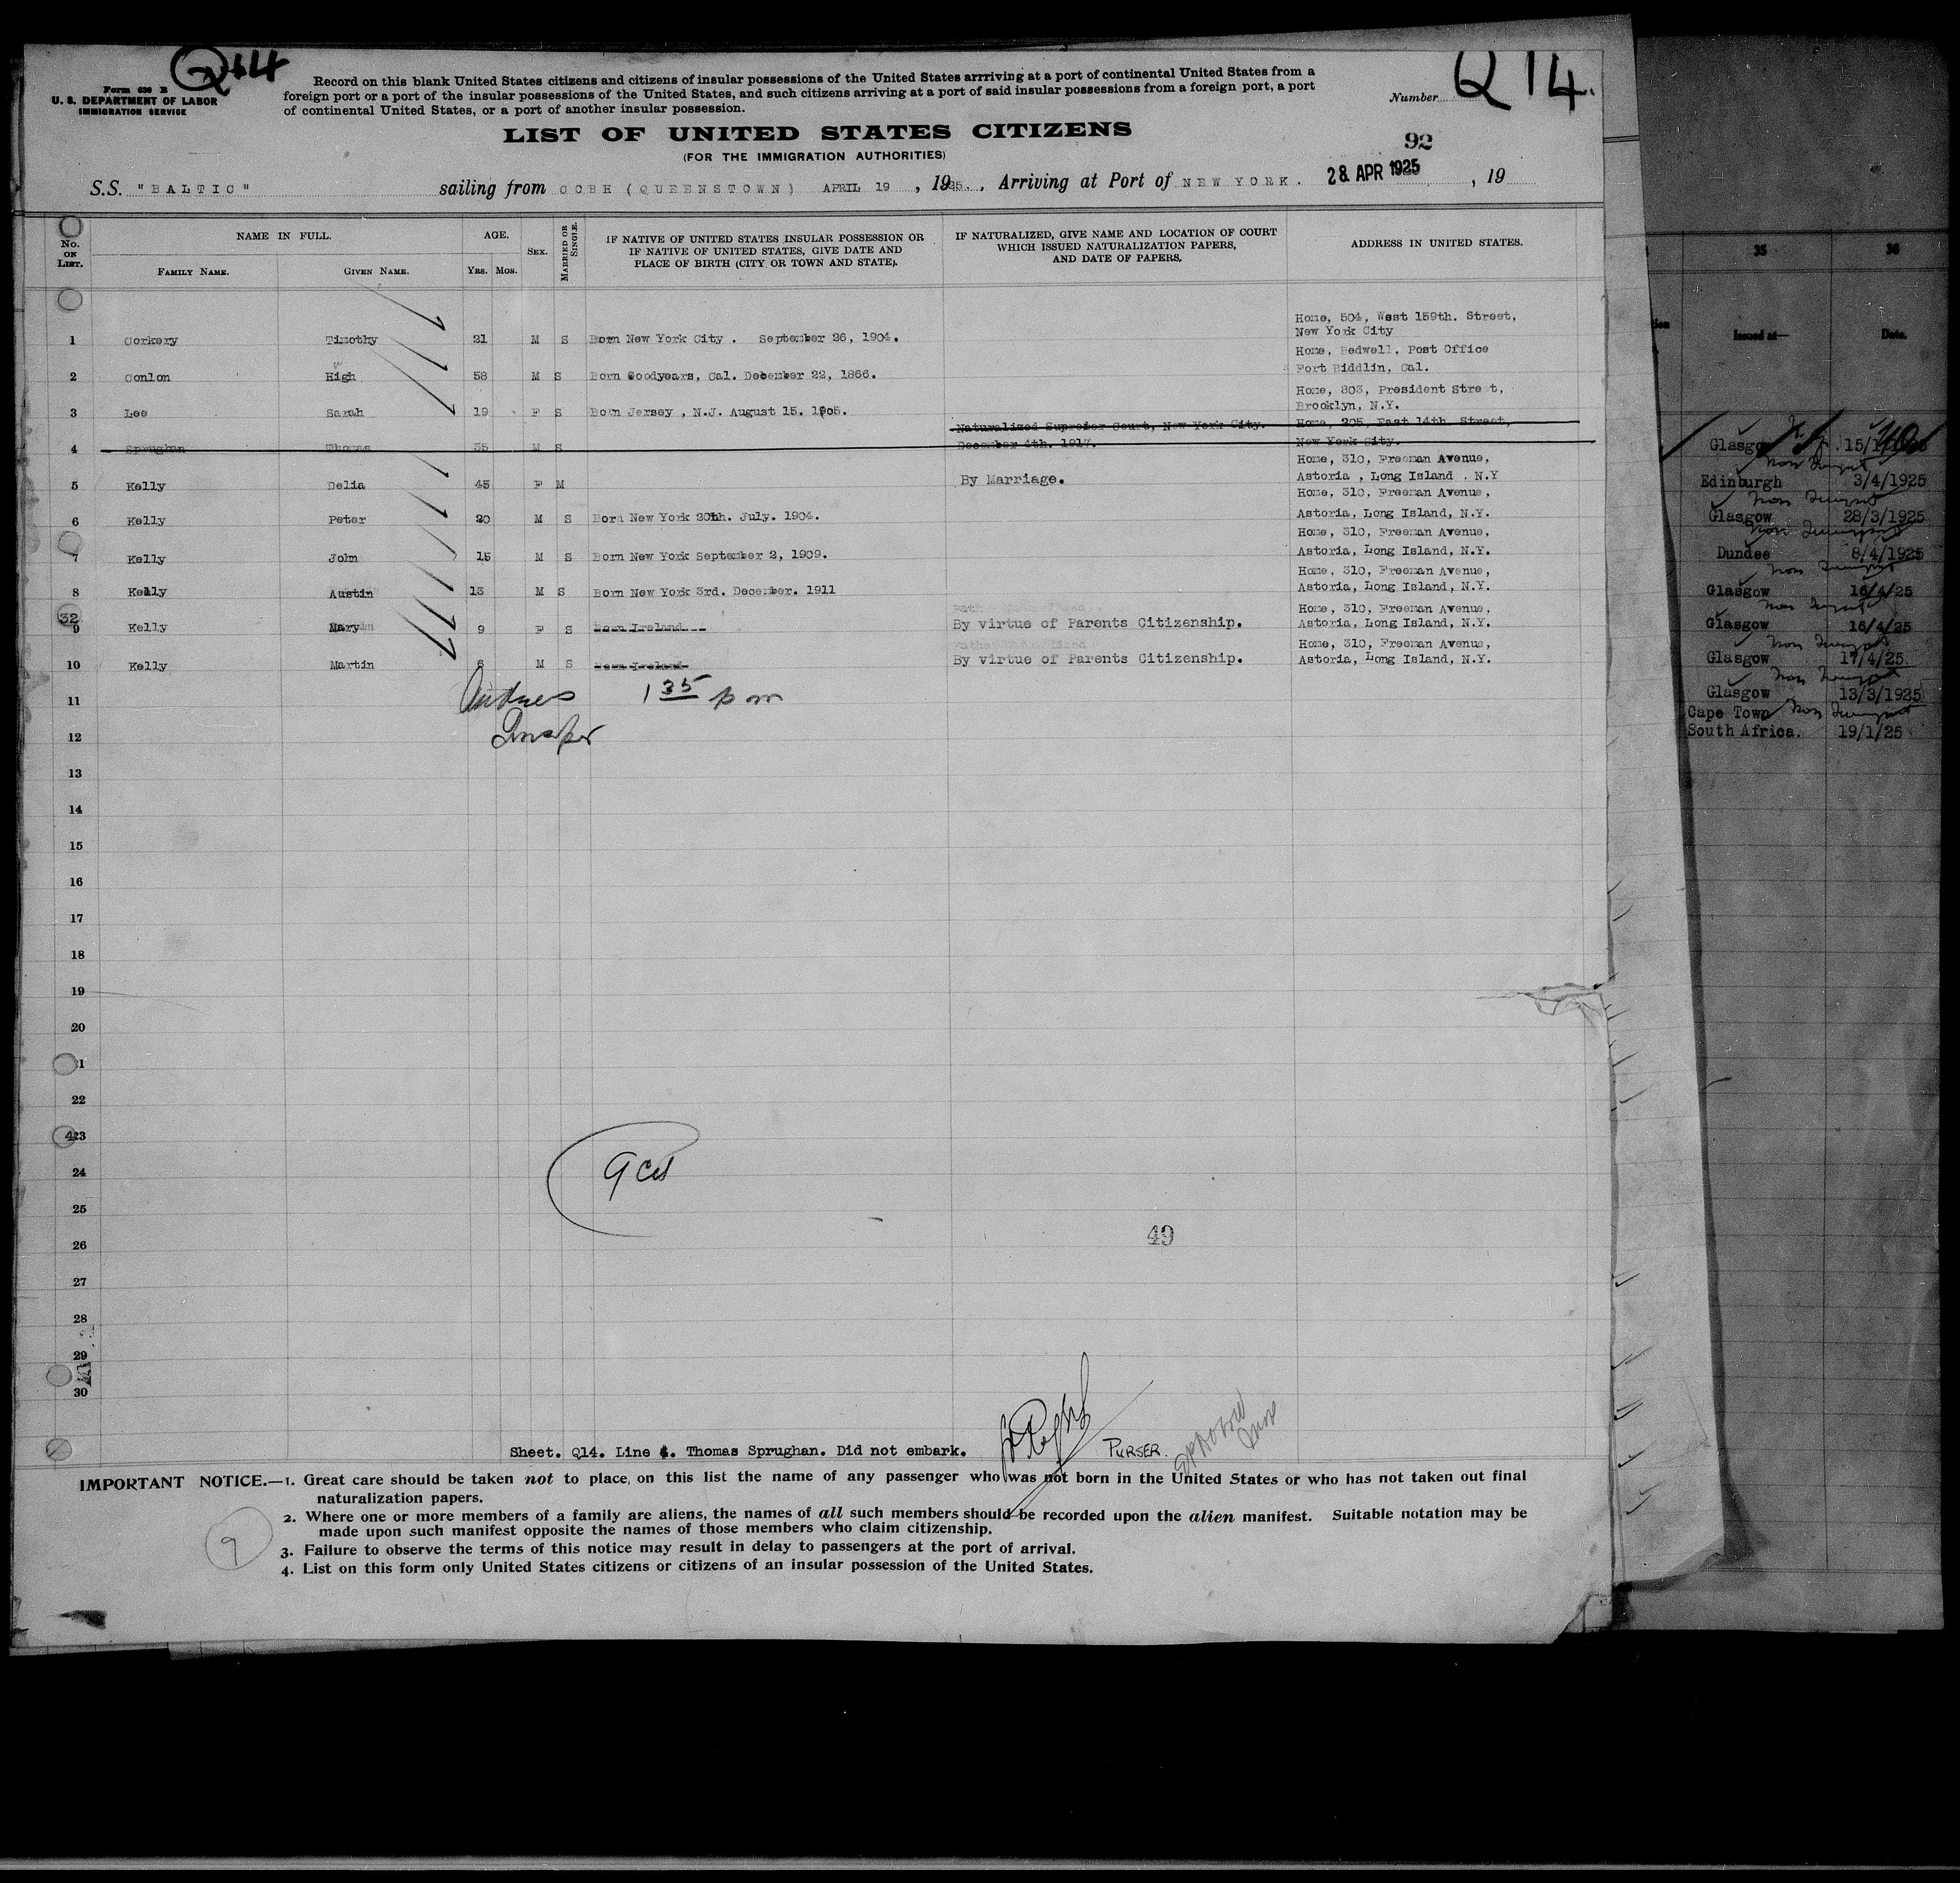 Q14
Form 630 B
U. S. DEPARTMENT OF LABOR
IMMIGRATION SERVICE
Record on this blank United States citizens and citizens of insular possessions of the United States arrriving at a port of continental United States from a
foreign port or a port of the insular possessions of the United States, and such citizens arriving at a port of said insular possessions from a foreign port, a port
of continental United States, or a port of another insular possession.
Number Q 14.
LIST OF UNITED STATES CITIZENS
(FOR THE IMMIGRATION AUTHORITIES)
92
S.S. "BALTIC" sailing from COBH (QUEENSTOWN) APRIL 19, 1925., Arriving at Port of NEW YORK. 28 APR 1925, 19
No. ON LIST.
NAME IN FULL.
FAMILY NAME. GIVEN NAME.
AGE.
YRS. MOS.
SEX.
MARRIED OR SINGLE.
IF NATIVE OF UNITED STATES INSULAR POSSESSION OR
IF NATIVE OF UNITED STATES, GIVE DATE AND
PLACE OF BIRTH (CITY OR TOWN AND STATE).
IF NATURALIZED, GIVE NAME AND LOCATION OF COURT
WHICH ISSUED NATURALIZATION PAPERS,
AND DATE OF PAPERS.
ADDRESS IN UNITED STATES.
Home, 504, West 159th. Street,
1 Corkery Timothy 21 M S Born New York City. September 26, 1904. New York City
Home, Bedwell, Post Office
2 Conlon High 58 M S Born Goodyears, Cal. December 22, 1866. Fort Biddlin, Cal.
Home, 803, President Street,
3 Lee Sarah 19 F S Born Jersey, N.J. August 15. 1905. Brooklyn, N.Y.
Naturalized Supreior Court, New York City. Home, 205, East 14th Street,
4 Sprughan Thomas 35 M S December 4th. 1917. New York City.
Home, 310, Freeman Avenue,
5 Kelly Delia 45 F M By Marriage. Astoria, Long Island. N.Y
Home, 310, Freeman Avenue,
6 Kelly Peter 20 M S Born New York 20th. July. 1904. Astoria, Long Island, N.Y.
Home, 310, Freeman Avenue,
7 Kelly John 15 M S Born New York September 2, 1909. Astoria, Long Island, N.Y.
Home, 310, Freeman Avenue,
8 Kelly Austin 13 M S Born New York 3rd. December. 1911 Astoria, Long Island, N.Y.
32
Home, 310, Freeman Avenue,
9 Kelly Mary 9 F S Born Ireland By virtue of Parents Citizenship. Astoria, Long Island, N.Y.
Home, 310, Freeman Avenue,
10 Kelly Martin 6 M S Born Ireland By virtue of Parents Citizenship. Astoria, Long Island, N.Y.
11 1 35 pm
12
13
14
15
16
17
18
19
20
21
22
23
24
9
25
49
26
27
28
29
30
Sheet. Q14. Line 4. Thomas Sprughan. Did not embark.
PURSER.
IMPORTANT NOTICE.—1. Great care should be taken not to place on this list the name of any passenger who was not born in the United States or who has not taken out final
naturalization papers.
2. Where one or more members of a family are aliens, the names of all such members should be recorded upon the alien manifest. Suitable notation may be
made upon such manifest opposite the names of those members who claim citizenship.
9
3. Failure to observe the terms of this notice may result in delay to passengers at the port of arrival.
4. List on this form only United States citizens or citizens of an insular possession of the United States.
35 36
Issued at— Date.
Glasgow 15/1/1925
Edinburgh 3/4/1925
Glasgow 28/3/1925
Dundee 8/4/1925
Glasgow 16/4/25
Glasgow 16/4/25
Glasgow 17/4/25
Glasgow 13/3/1925
Cape Town
South Africa. 19/1/25